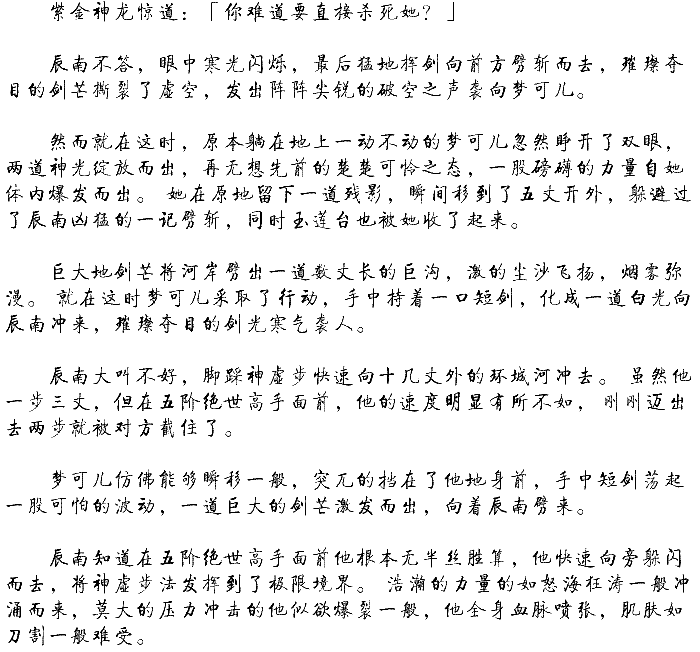 紫金神龙惊道：「你难道要直接杀死她？」
辰南不答，眼中寒光闪烁，最后猛地挥剑向前方劈斩而去，璀璨夺
目的剑芒撕裂了虚空，发出阵阵尖锐的破空之声袭向梦可儿。
然而就在这时，原本躺在地上一动不动的梦可儿忽然睁开了双眼，
两道神光绽放而出，再无想先前的楚楚可怜之态，一股磅礴的力量自她
体内爆发而出。 她在原地留下一道残影，瞬间移到了五丈开外，躲避过
了辰南凶猛的一记劈斩，同时玉莲台也被她收了起来。
巨大地剑芒将河岸劈出一道数丈长的巨沟，激的尘沙飞扬，烟雾弥
漫。 就在这时梦可儿采取了行动，手中持着一口短剑，化成一道白光向
辰南冲来，璀璨夺目的剑光寒气袭人。
辰南大叫不好，脚踩神虚步快速向十几丈外的环城河冲去。 虽然他
一步三丈，但在五阶绝世高手面前，他的速度明显有所不如， 刚刚迈出
去两步就被对方截住了。
梦可儿仿佛能够瞬移一般，突兀的挡在了他地身前，手中短剑荡起
一股可怕的波动，一道巨大的剑芒激发而出，向着辰南劈来。
辰南知道在五阶绝世高手面前他根本无半丝胜算，他快速向旁躲闪
而去，将神虚步法发挥到了极限境界。 浩瀚的力量的如怒海狂涛一般冲
涌而来，莫大的压力冲击的他似欲爆裂一般，他全身血脉喷张，肌肤如
刀割一般难受。